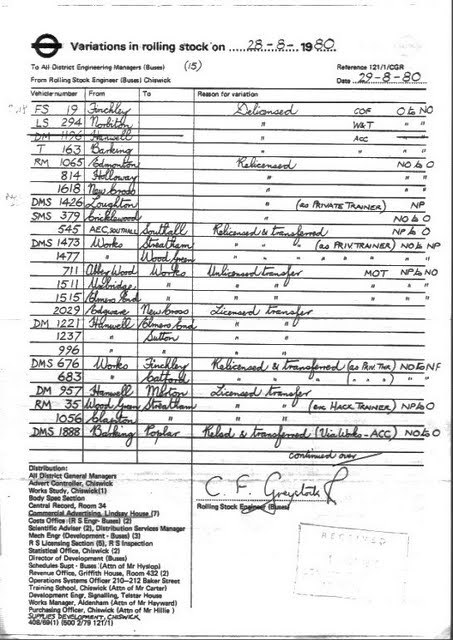 Variations in rolling stock on 28-8-1980
To All District Engineering Managers (Buses) (15) Reference 121/1/CGR
From Rolling Stock Engineer (Buses) Chiswick Date 29-8-80
Vehicle number From To Reason for variation
FS 19 Finchley Delicensed COF O to NO
LS 294 Norbiton " W&T " "
DM 1196 Hanwell " ACC " "
T 163 Barking " " "
RM 1065 Edmonton Relicensed NO to O
814 Holloway " "
1618 New Cross " "
DMS 1426 Loughton " (as PRIVATE TRAINER) NP
SMS 379 Cricklewood " NO to O
545 AEC, SOUTHALL Southall Relicensed & transferred NO to O
DMS 1473 Works Streatham " " " (as PRIV. TRAINER) NO to NP
1477 " Wood Green " " " " " " " "
711 Abbey Wood Works Unlicensed transfer MOT NP to NO
1511 Uxbridge " " " " "
1515 Elmers End " " " " "
2029 Edgware New Cross Licensed transfer
DM 1221 Hanwell Elmers End " "
1237 " Sutton " "
996 " " " "
DMS 676 Works Finchley Relicensed & transferred (as Priv. Thr) NO to NP
683 " Catford " " " ( " " " ) " "
DM 957 Hanwell Merton Licensed transfer
RM 35 Wood Green Streatham " " (exc HACK TRAINER) NP to O
1056 Clacton " " "
DMS 1888 Barking Poplar Relsd & transferred (Via Works - ACC) NO to O
continued over
Distribution:
All District General Managers
Advert Controller, Chiswick
Works Study, Chiswick (1)
Body Spec Section
Central Record, Room 34
Commercial Advertising, Lindsay House (7)
Costs Office (R S Engr- Buses) (2)
Scientific Adviser (2), Distribution Services Manager
Mech Engr (Development - Buses) (3)
R S Licensing Section (5), R S Inspection
Statistical Office, Chiswick (2)
Director of Development (Buses)
Schedules Supt - Buses (Attn of Mr Hyslop)
Revenue Office, Griffith House, Room 432 (2)
Operations Systems Officer 210-212 Baker Street
Training School, Chiswick (Attn of Mr Carter)
Development Engr, Signalling, Telstar House
Works Manager, Aldenham (Attn of Mr Hayward)
Purchasing Officer, Chiswick (Attn of Mr Hillie)
SUPPLIES DEVELOPMENT, CHISWICK.
408/69(1) (500 2/79 121/1)
C. F. Greystock
Rolling Stock Engineer (Buses)
RECEIVED